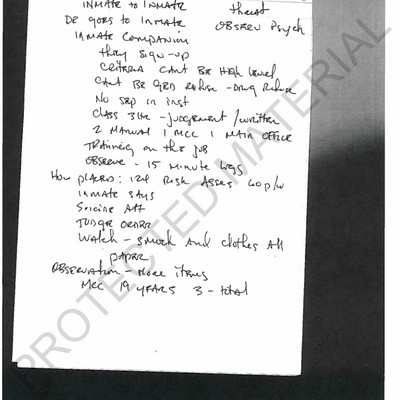 INMATE to INMATE
DR goes to INMATE OBSERV Psych
INMATE COMPANION
they sign-up
CRITERIA CANT BE HIGH level
CANT BE GED REFUSE - DRUG REFUSE
NO SEP in inst
CLASS 3 hr - JUDGEMENT / WRITTEN
2 MANUAL 1 MCC 1 MAIN OFFICE
TRAINING on the JOB
OBSERVE - 15 MINUTE logs
How placed: RISK ASSES
INMATE SAYS
SUICIDE ATT
JUDGE ORDER
WATCH - SMOCK AND clothes All
PAPER
OBSERVATION - MORE items
MCC 19 YEARS 3 - total
PROTECTED MATERIAL